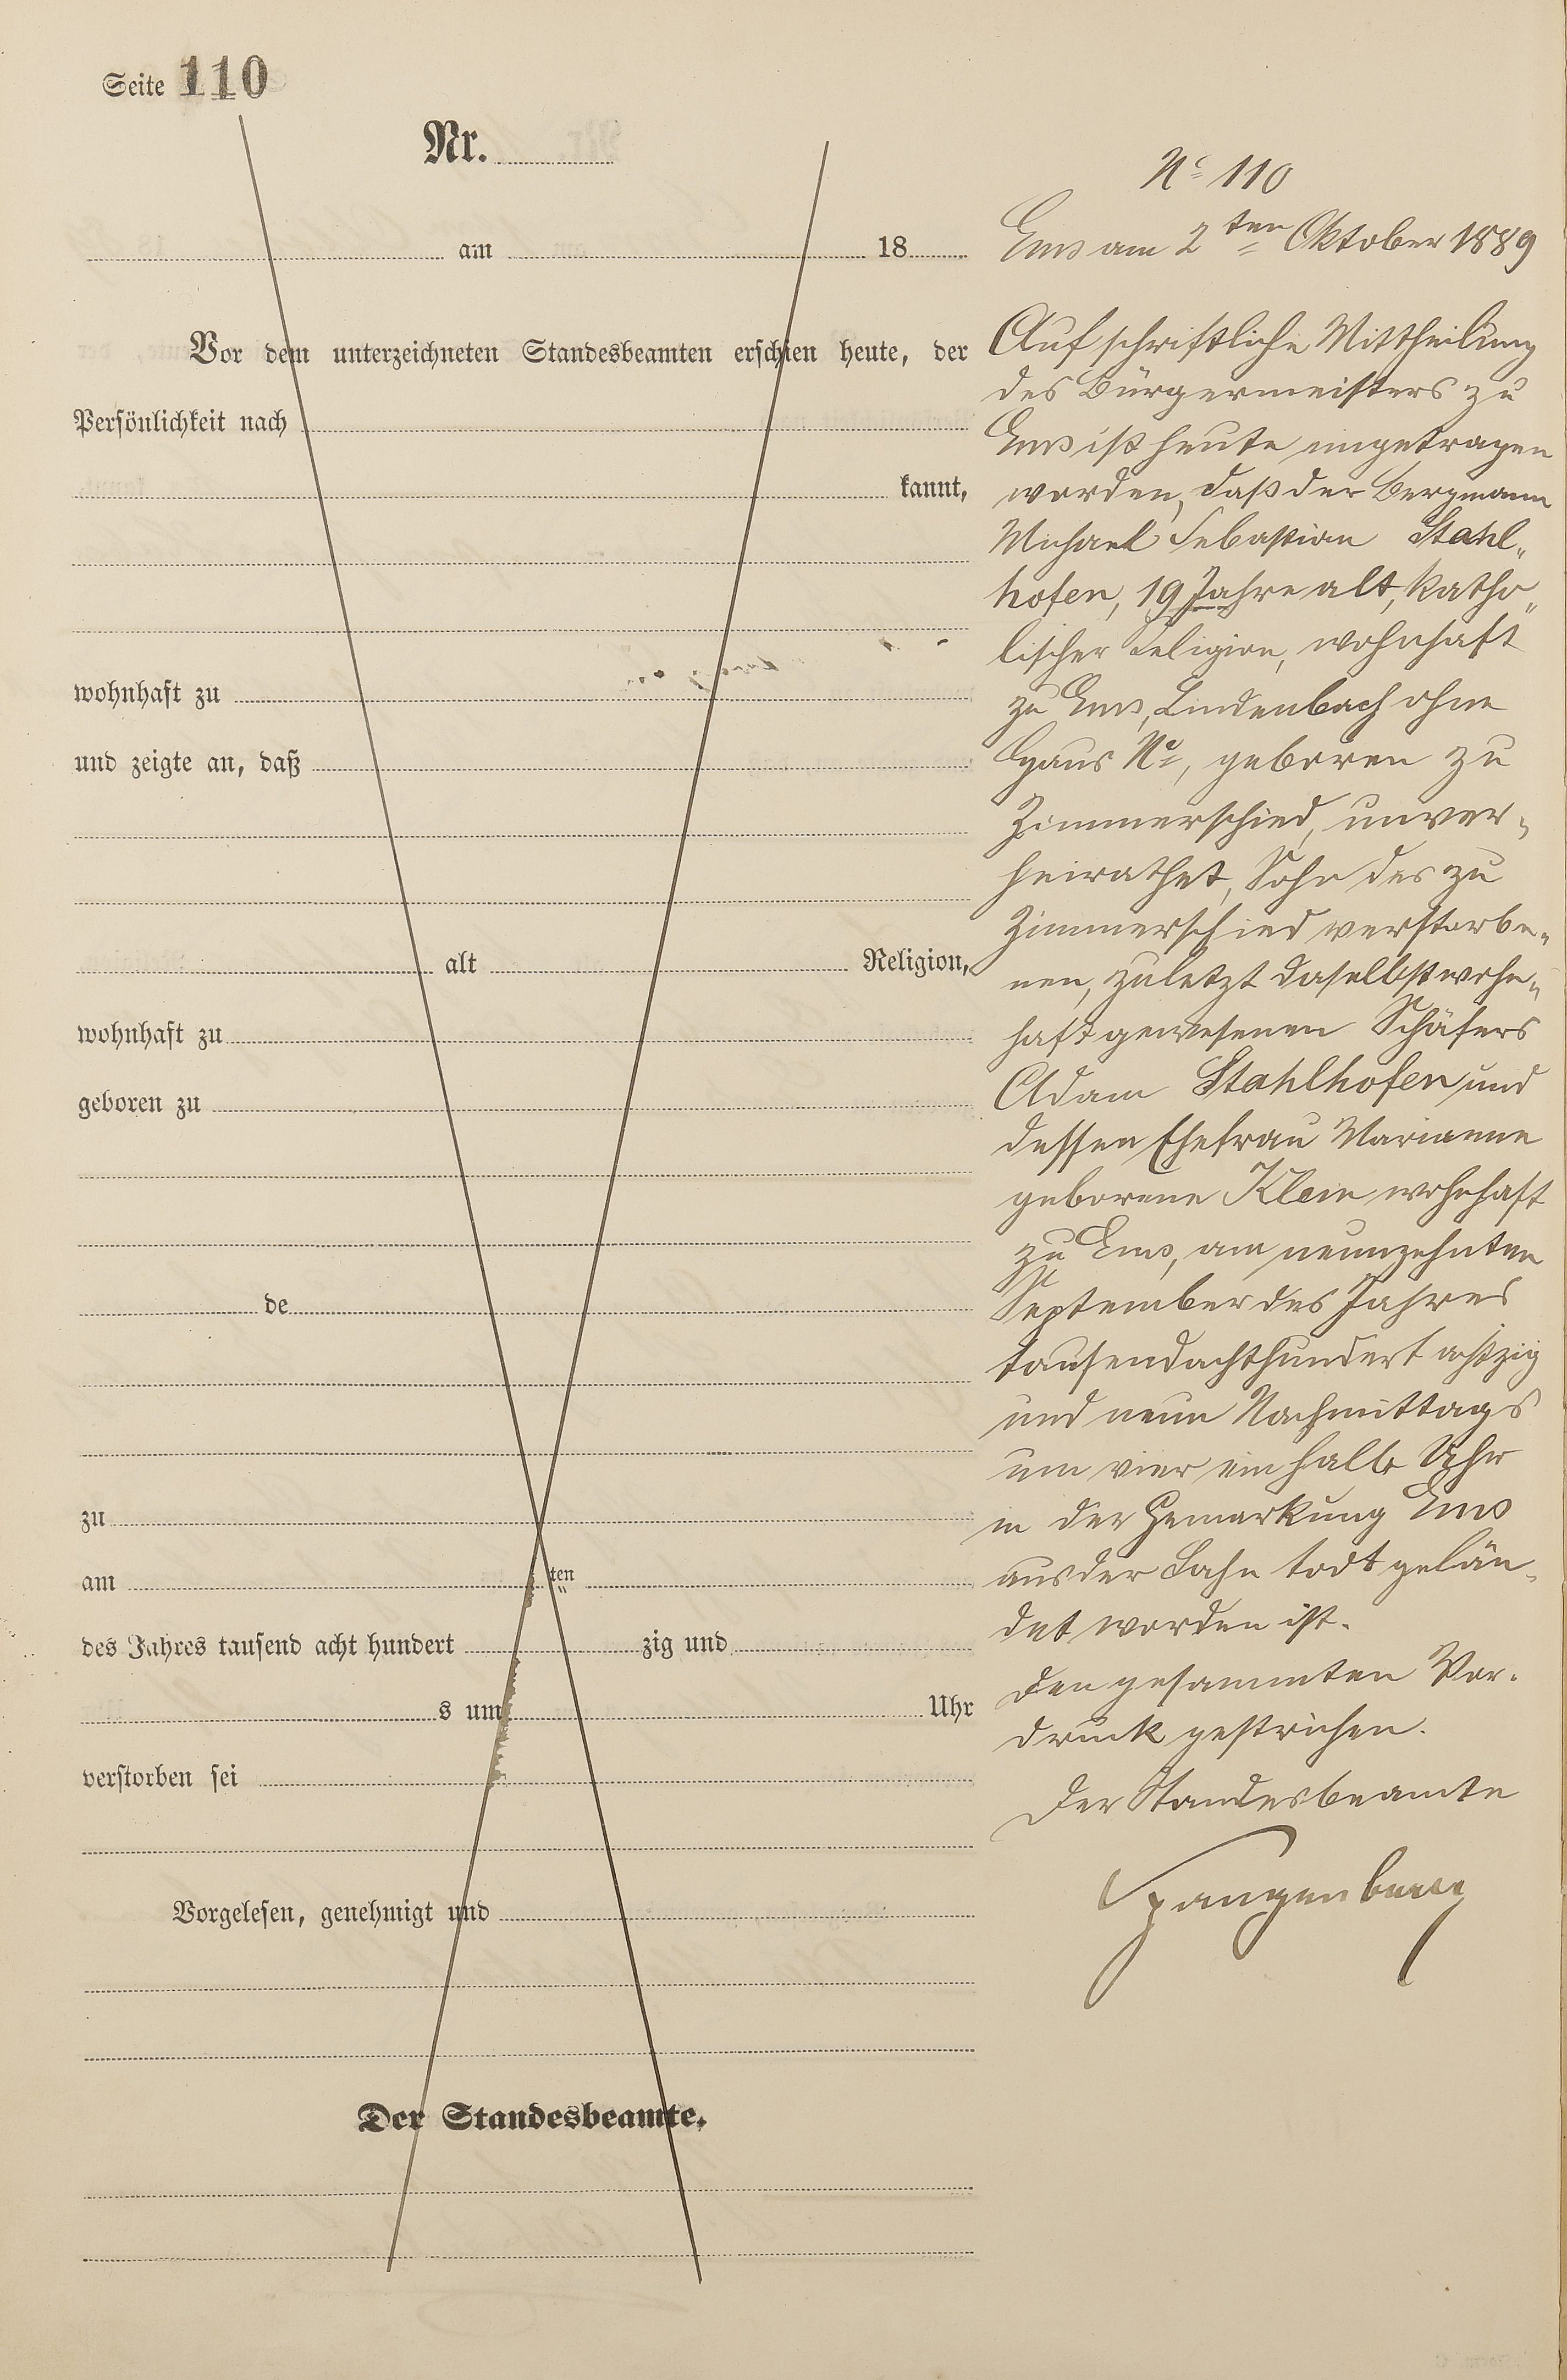 Seite 110
Nr.
am 18
Vor dem unterzeichneten Standesbeamten erschien heute, der
Persönlichkeit nach
kannt,
wohnhaft zu
und zeigte an, daß
alt Religion,
wohnhaft zu
geboren zu
de
zu
am ten
des Jahres tausend acht hundert zig und
s um Uhr
verstorben sei
Vorgelesen, genehmigt und
Der Standesbeamte.
No 110
Ems am 2ten Oktober 1889
Auf schriftliche Mittheilung
des Bürgermeisters zu
Ems ist heute eingetragen
worden, daß der Bergmann
Michael Sebastian Stahl„
hofen, 19 Jahre alt, katho„
lischer Religion, wohnhaft
zu Ems, Lindenbach ohne
Haus No, geboren zu
Zimmerschied, unver„
heirathet, Sohn des zu
Zimmerschied verstorbe„
nen, zuletzt daselbst wohn„
haft gewesenen Schäfers
Adam Stahlhofen und
dessen Ehefrau Marianne
geborene Klein wohnhaft
zu Ems, am neunzehnten
September des Jahres
tausendachthundert achtzig
und neun Nachmittags
um vier ein halb Uhr
in der Gemarkung Ems
aus der Lahn todt gelän„
det worden ist.
Den gesammten Vor„
druck gestrichen.
Der Standesbeamte
Spangenberg